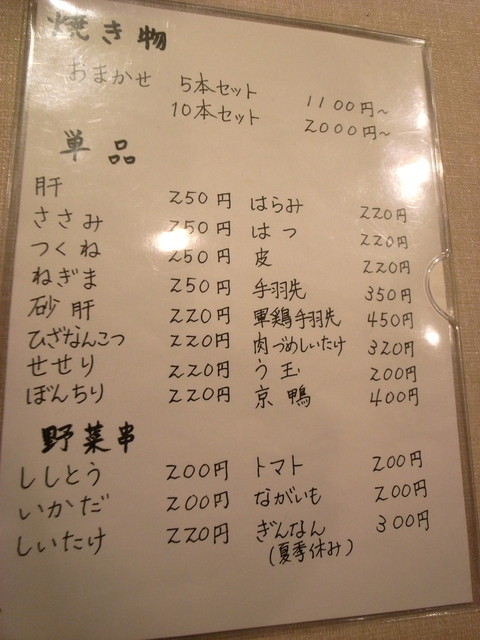 焼き物
おまかせ 5本セット 1100円~
10本セット 2000円~
単品
肝 250円
ささみ 250円
つくね 250円
ねぎま 250円
砂肝 220円
ひざなんこつ 220円
せせり 220円
ぼんちり 220円
はらみ 220円
はつ 220円
皮 220円
手羽先 350円
軍鶏手羽先 450円
肉づめしいたけ 320円
う玉 200円
京鴨 400円
野菜串
ししとう 200円
いかだ 200円
しいたけ 220円
トマト 200円
ながいも 200円
ぎんなん 300円
(夏季休み)